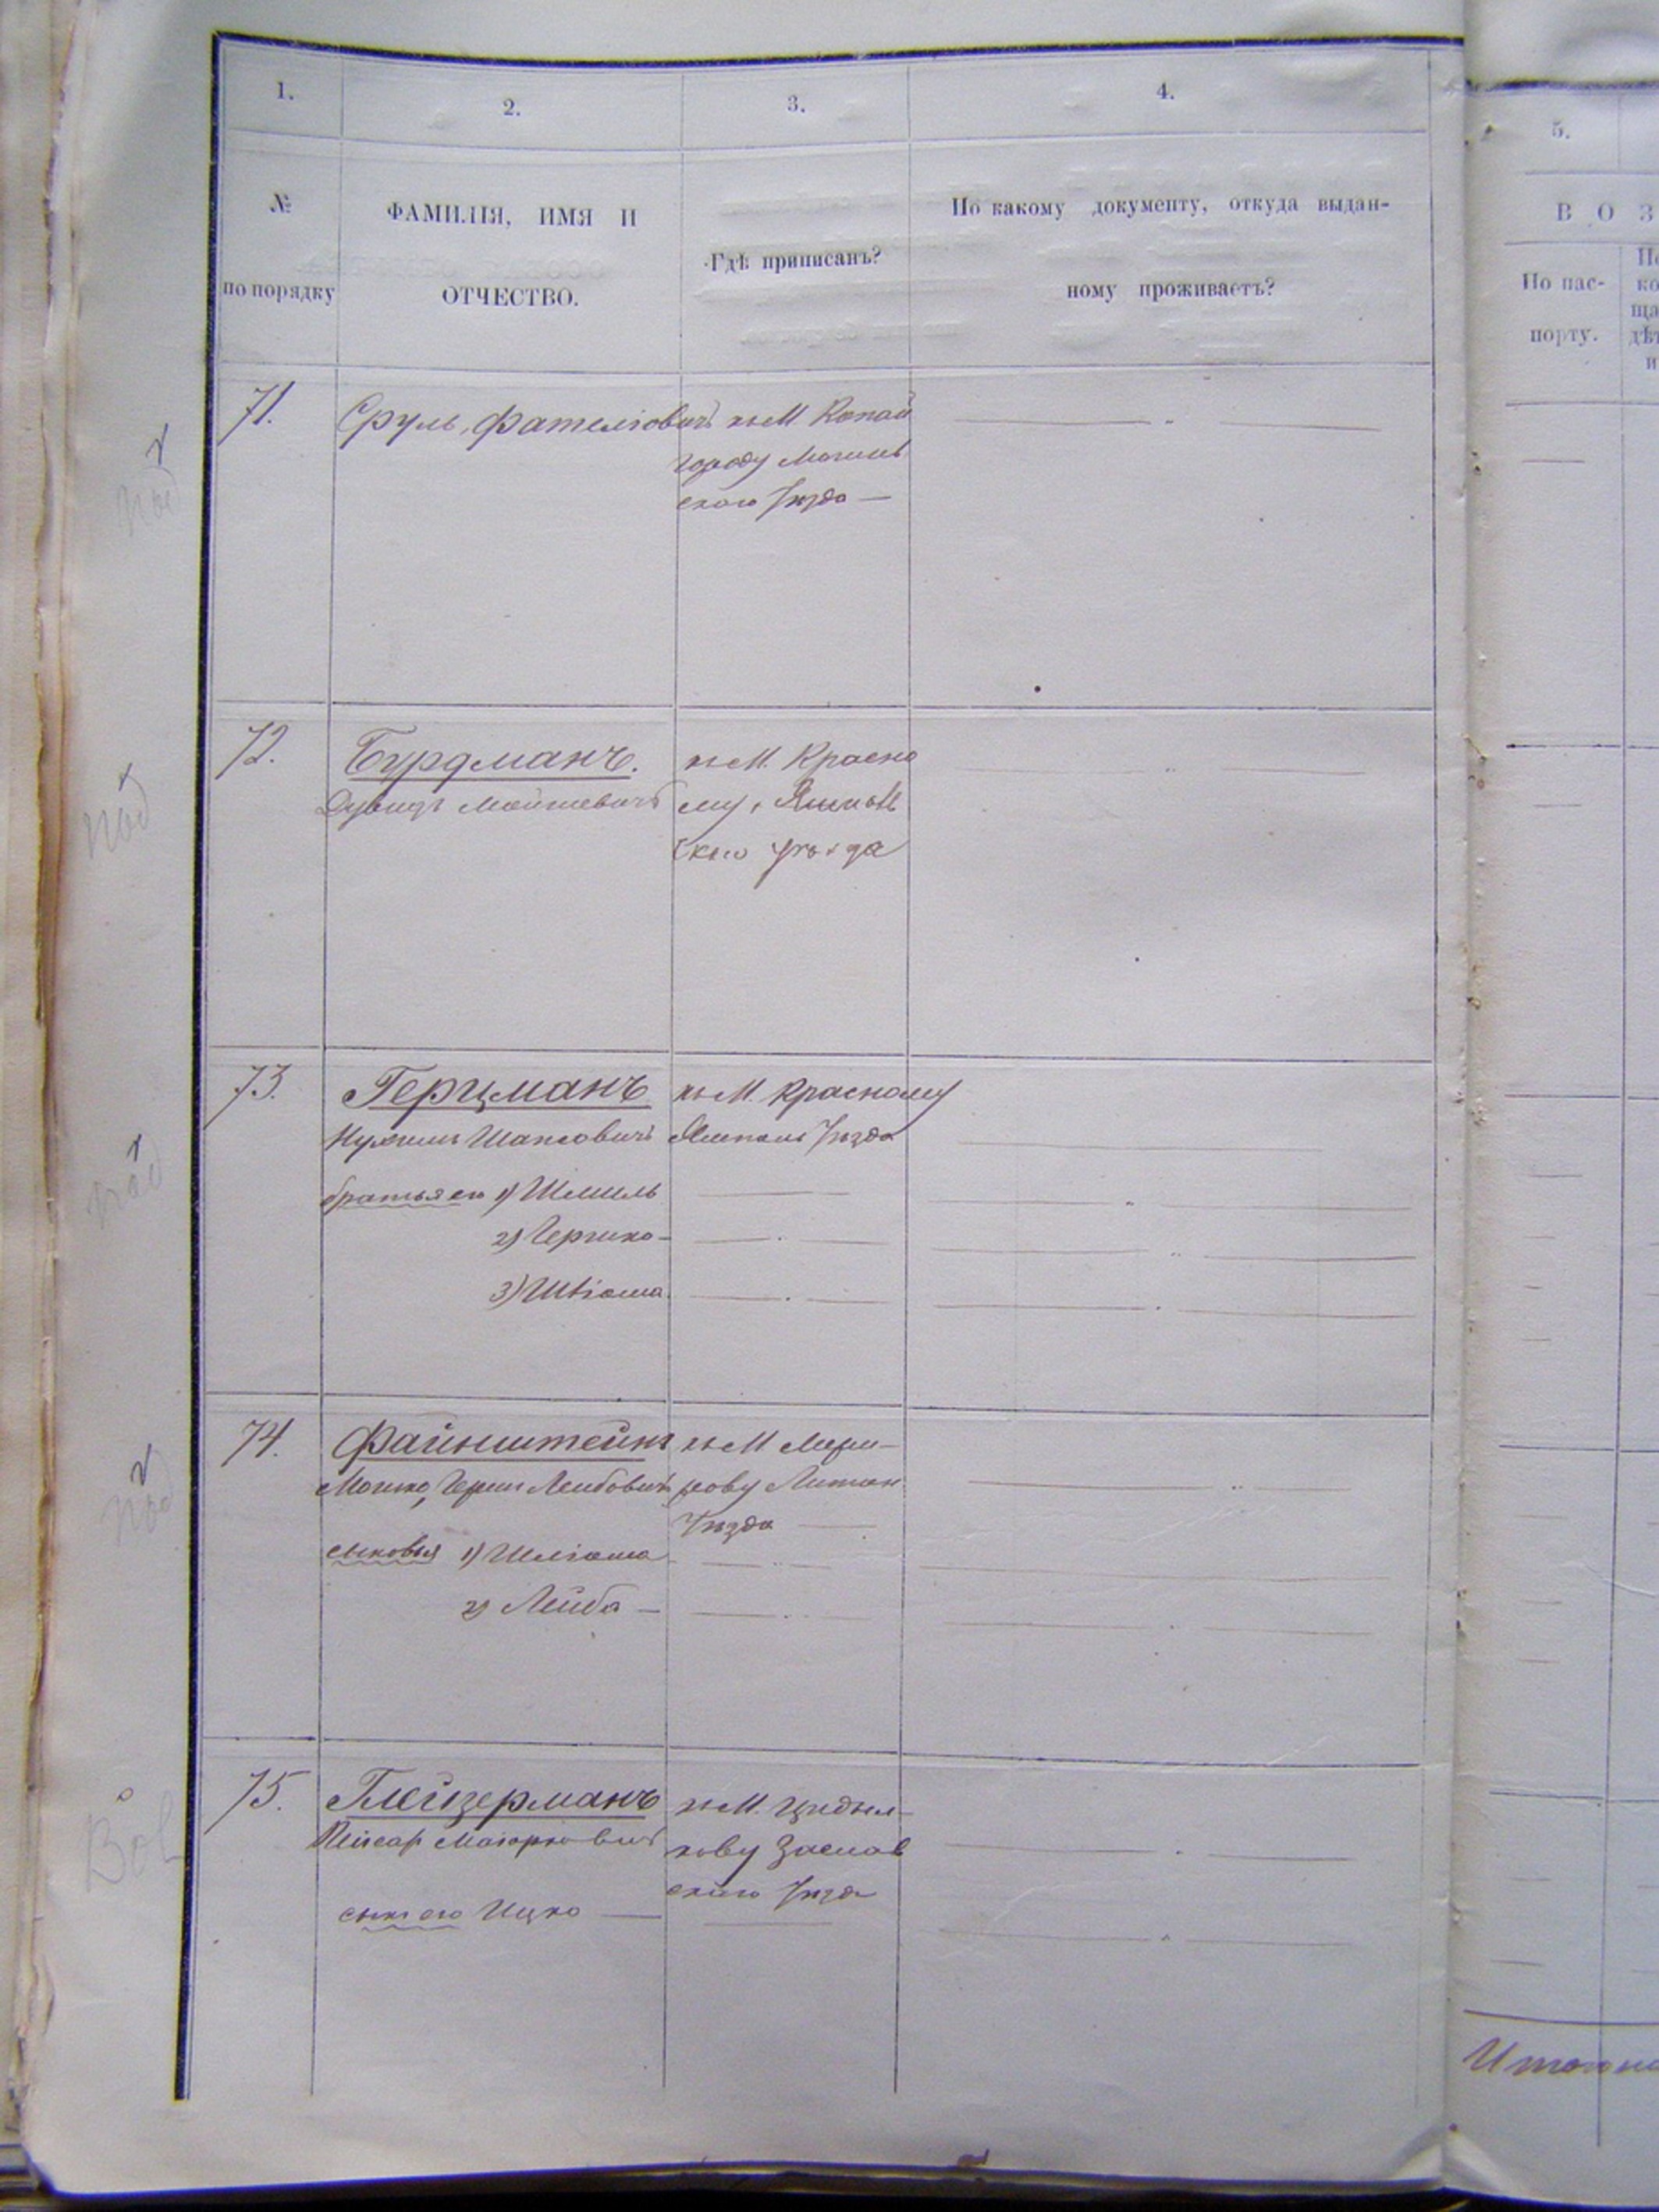 1.
2.
3.
4.
5.
№
по порядку
ФАМИЛІЯ, ИМЯ И
ОТЧЕСТВО.
Гдѣ приписанъ?
По какому документу, откуда выдан-
ному проживаетъ?
В О З
По пас-
порту.
71.
Сруль, Фателіовичъ
къ М Копай
городу Могилев
скаго Уѣзда —
72.
Бурдманъ.
Дувидъ Мошкевичъ
къ М. Красно
му, Ямполь
скаго уѣзда
73.
Герцманъ
Шапсовичъ
братья его 1) Шмиль
2) Гершко —
3) Шліома
къ М. Красному
Ямполь Уѣзда
74.
Файнштейнъ
Мошко, Герш Лейбовичъ
сыновья 1) Шліома
2) Лейба —
къ М
рову Литин
Уѣзда —
75.
Глейзерманъ
Пейсар Маіоровичъ
сынъ его Ицко —
къ М.
кову Заслав
скаго Уѣзда